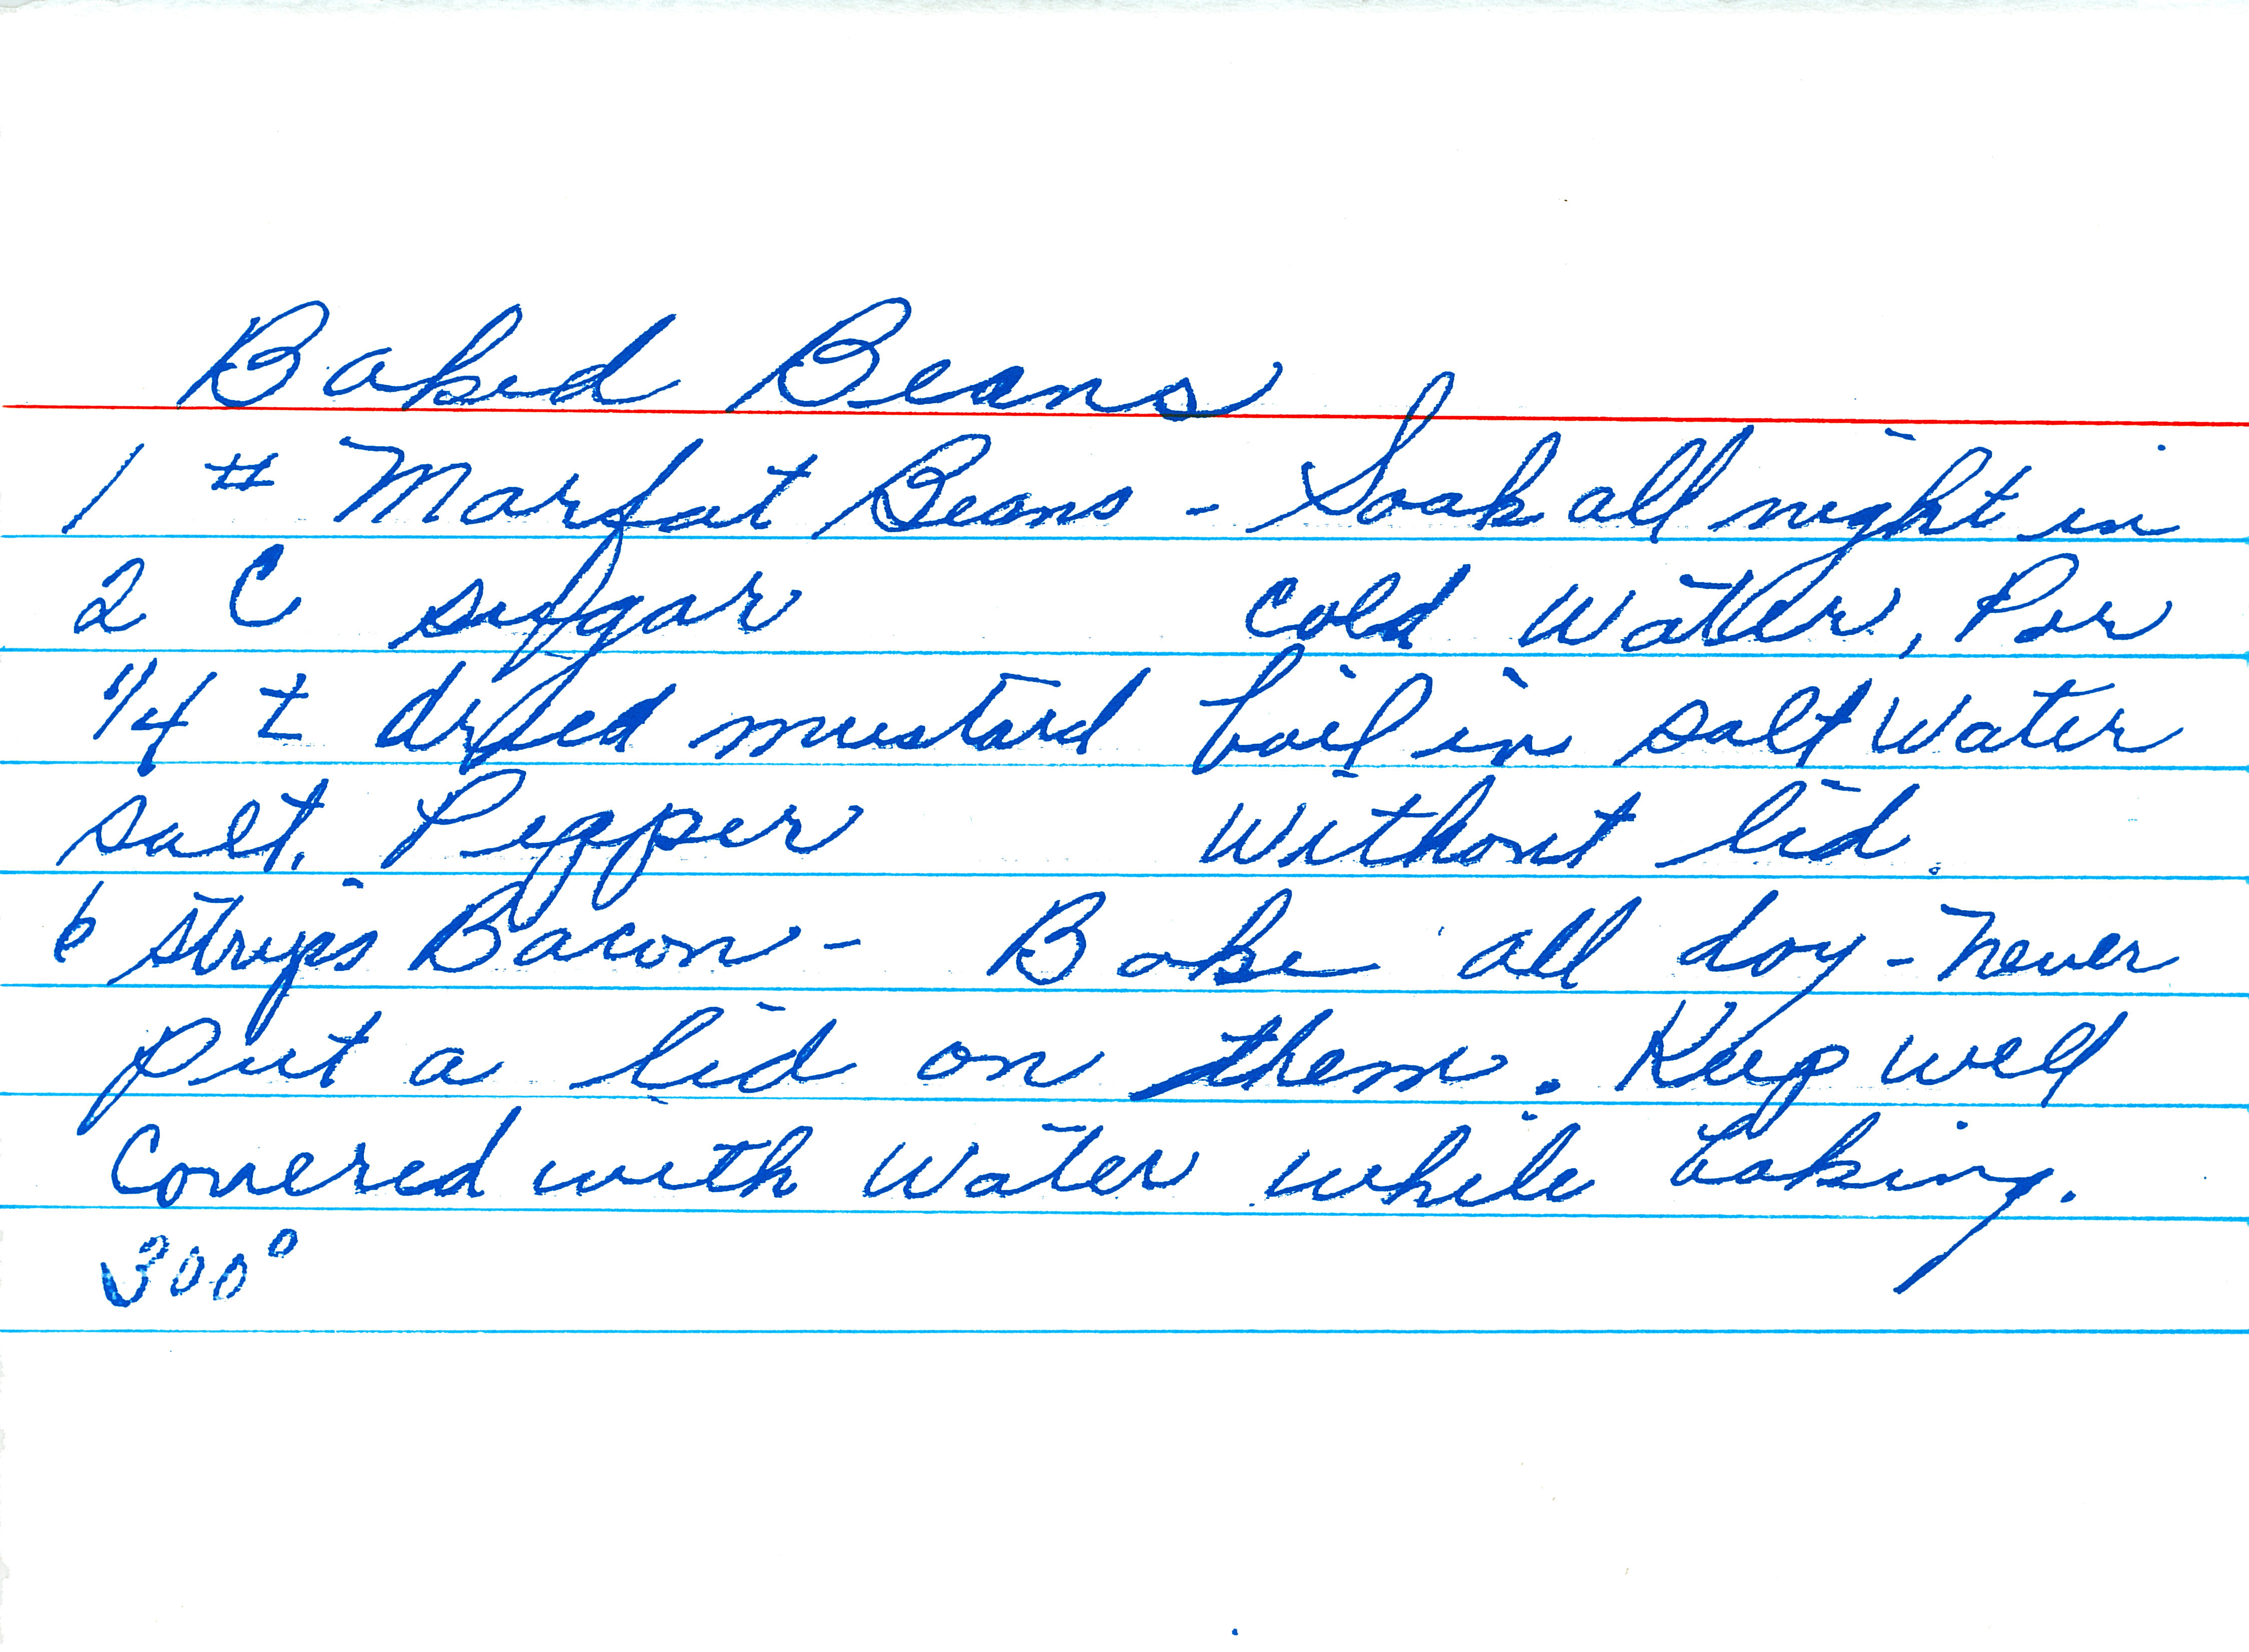 Baked Beans
1 # Marfat Beans - Soak all night in
2 C sugar cold water, Par
1/4 t dried mustard boil in salt water
salt. Pepper without lid.
6 strips Bacon - Bake all day - never
put a lid on them. Keep well
Covered with water while baking.
300°